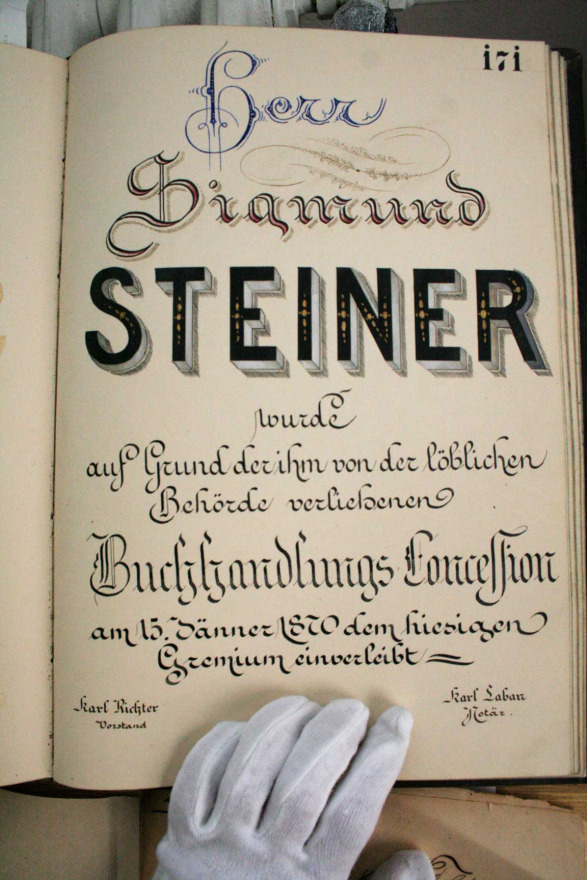 171
Herr
Sigmund
STEINER
wurde
auf Grund der ihm von der löblichen
Behörde verliehenen
Buchhandlungs Concession
am 15. Jänner 1870 dem hiesigen
Gremium einverleibt
Karl Richter
Vorstand
Karl Labarr
Notär.